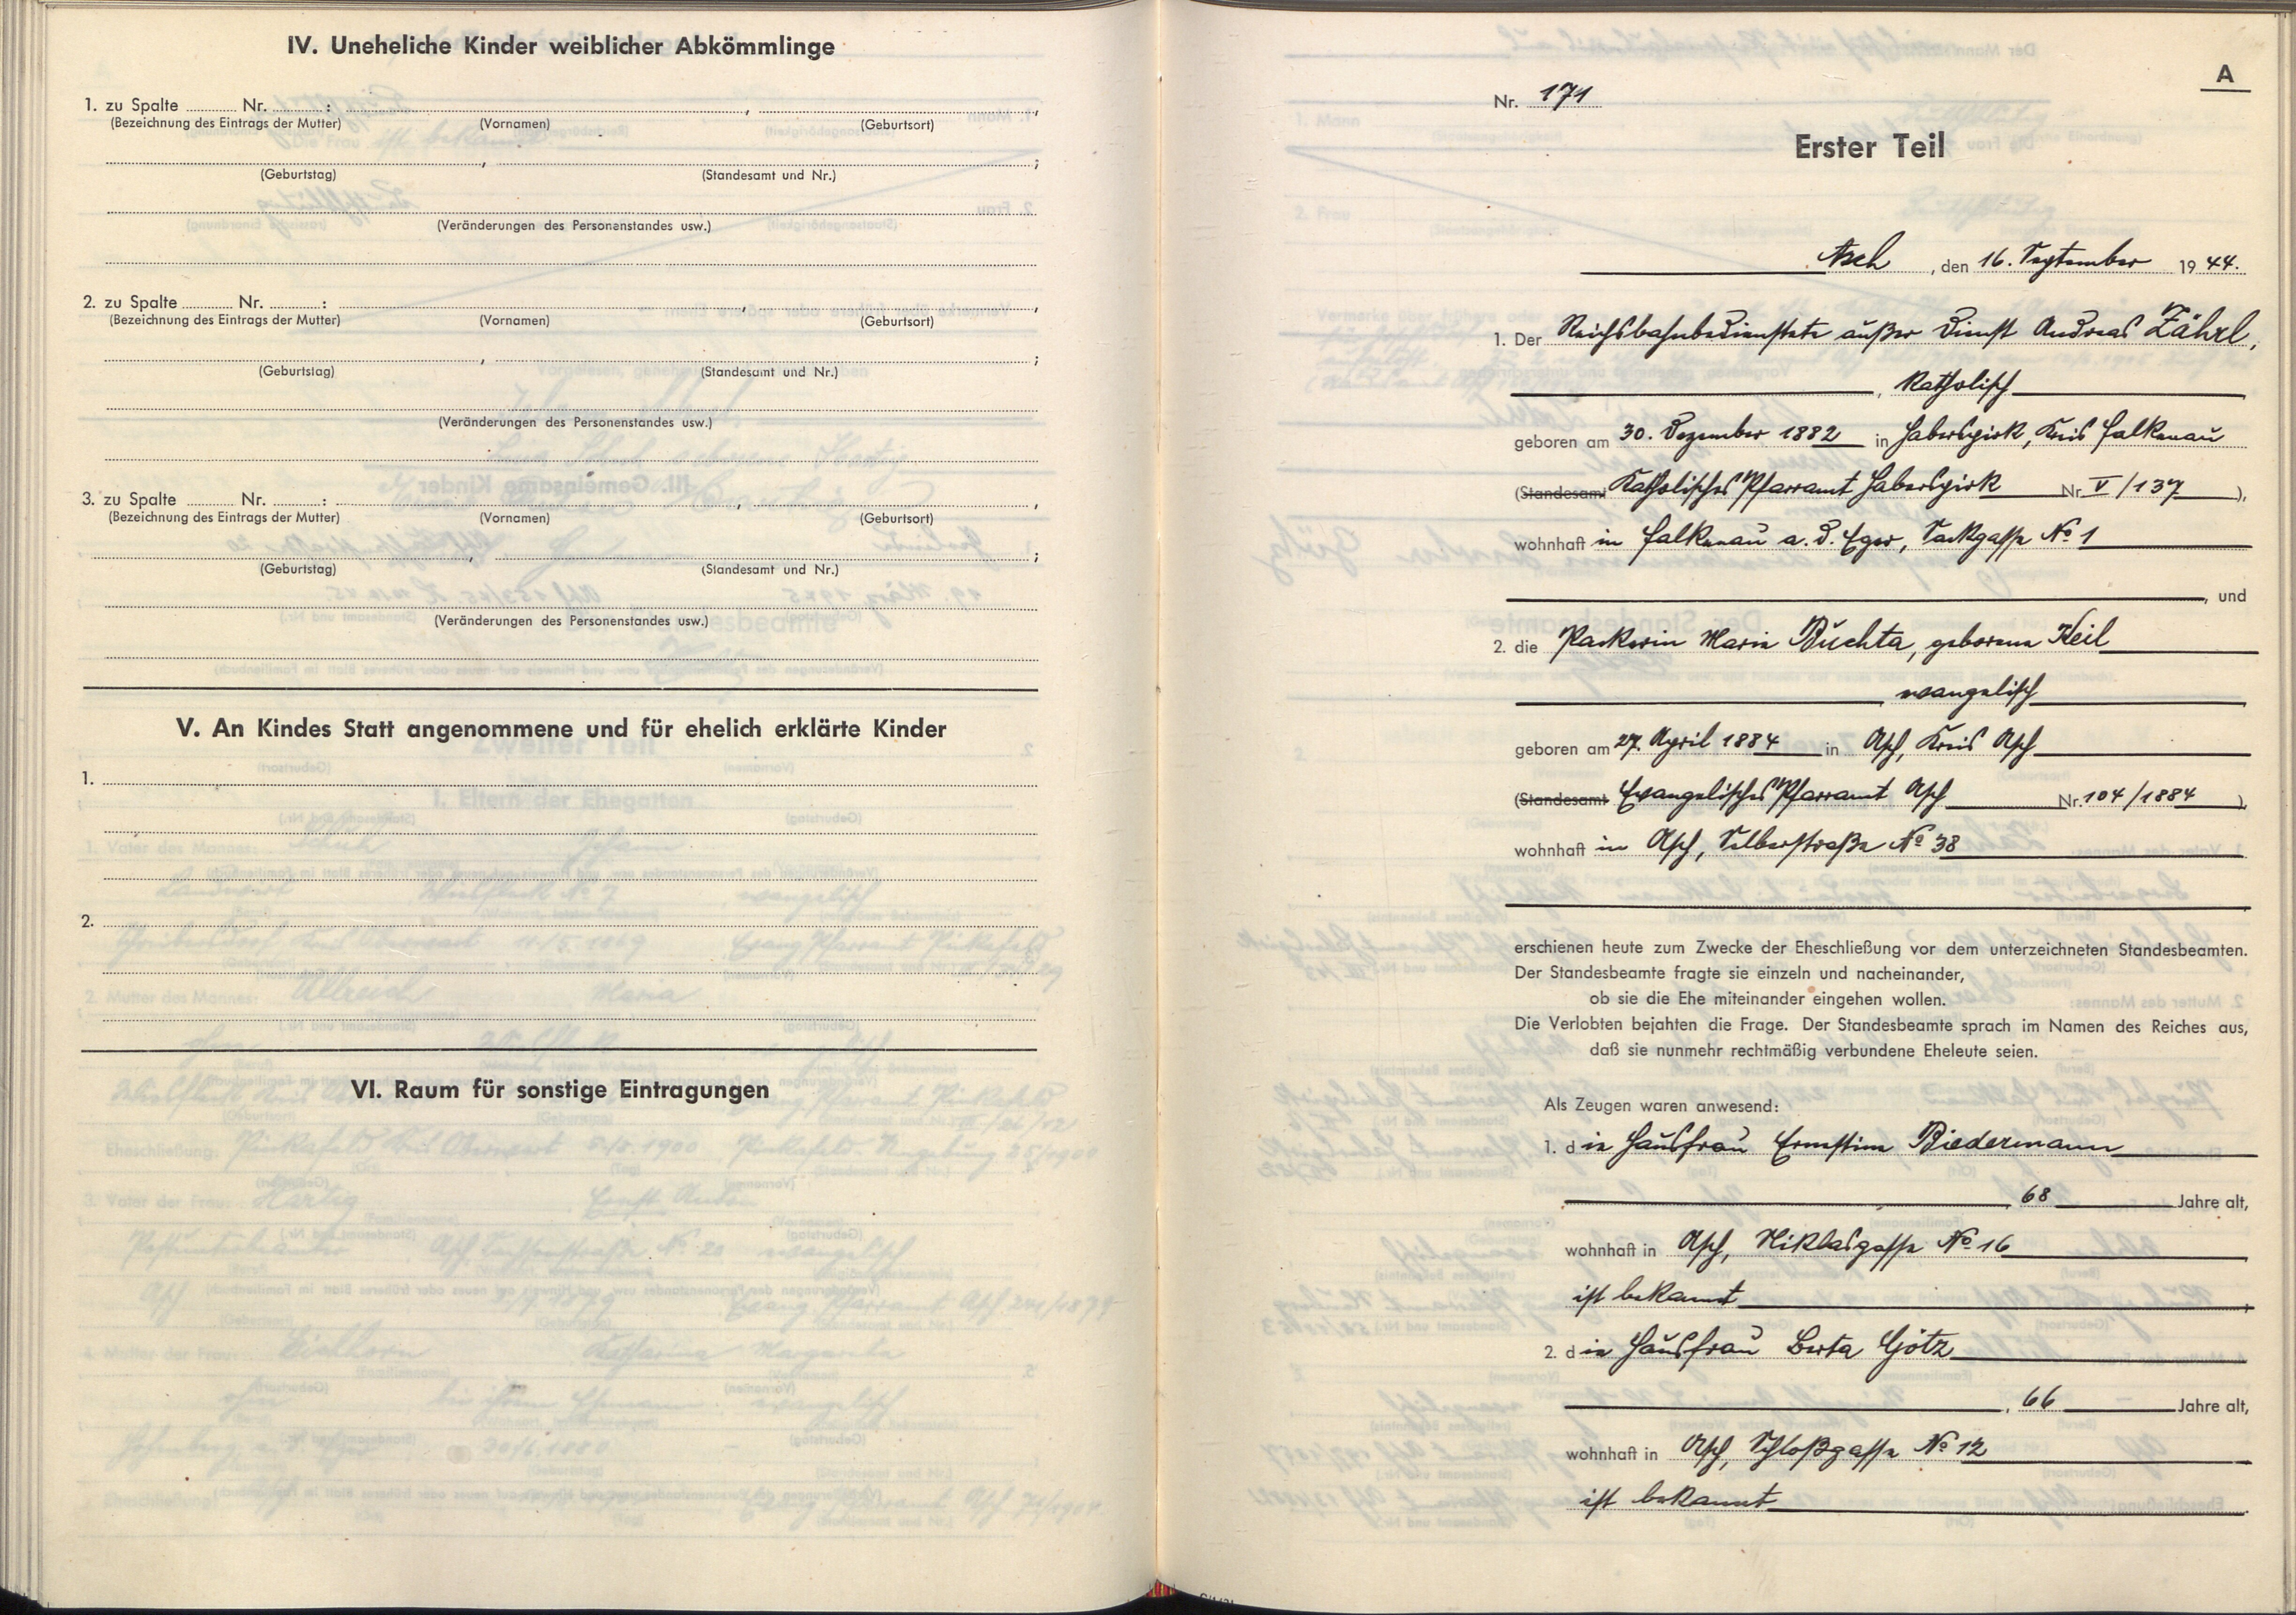 IV. Uneheliche Kinder weiblicher Abkömmlinge
1. zu Spalte Nr. : , ,
(Bezeichnung des Eintrags der Mutter) (Vornamen) (Geburtsort)
, ;
(Geburtstag) (Standesamt und Nr.)
(Veränderungen des Personenstandes usw.)
2. zu Spalte Nr. : , ,
(Bezeichnung des Eintrags der Mutter) (Vornamen) (Geburtsort)
, ;
(Geburtstag) (Standesamt und Nr.)
(Veränderungen des Personenstandes usw.)
3. zu Spalte Nr. : , ,
(Bezeichnung des Eintrags der Mutter) (Vornamen) (Geburtsort)
, ;
(Geburtstag) (Standesamt und Nr.)
(Veränderungen des Personenstandes usw.)
V. An Kindes Statt angenommene und für ehelich erklärte Kinder
1.
2.
VI. Raum für sonstige Eintragungen
A
Nr. 171
Erster Teil
Asch, den 16. September 1944.
1. Der Reichsbahnbedienstete außer Dienst Andreas Zährl,
, katholisch
geboren am 30. Dezember 1882 in Haberspirk, Kreis Falkenau
(Standesamt Katholisches Pfarramt Haberspirk Nr. V/137),
wohnhaft in Falkenau a. d. Eger, Nº 1
, und
2. die Packerin Maria Buchta, geborene Keil
, evangelisch
geboren am 27. April 1884 in Asch, Kreis Asch
(Standesamt Evangelisches Pfarramt Asch Nr. 104/1884),
wohnhaft in Asch, Selberstraße Nº 38
erschienen heute zum Zwecke der Eheschließung vor dem unterzeichneten Standesbeamten.
Der Standesbeamte fragte sie einzeln und nacheinander,
ob sie die Ehe miteinander eingehen wollen.
Die Verlobten bejahten die Frage. Der Standesbeamte sprach im Namen des Reiches aus,
daß sie nunmehr rechtmäßig verbundene Eheleute seien.
Als Zeugen waren anwesend:
1. die Hausfrau Ernstine Biedermann
, 68 Jahre alt,
wohnhaft in Asch, Niklasgasse Nº 16
ist bekannt,
2. die Hausfrau Berta Götz
, 66 Jahre alt,
wohnhaft in Asch, Schloßgasse Nº 12
ist bekannt.